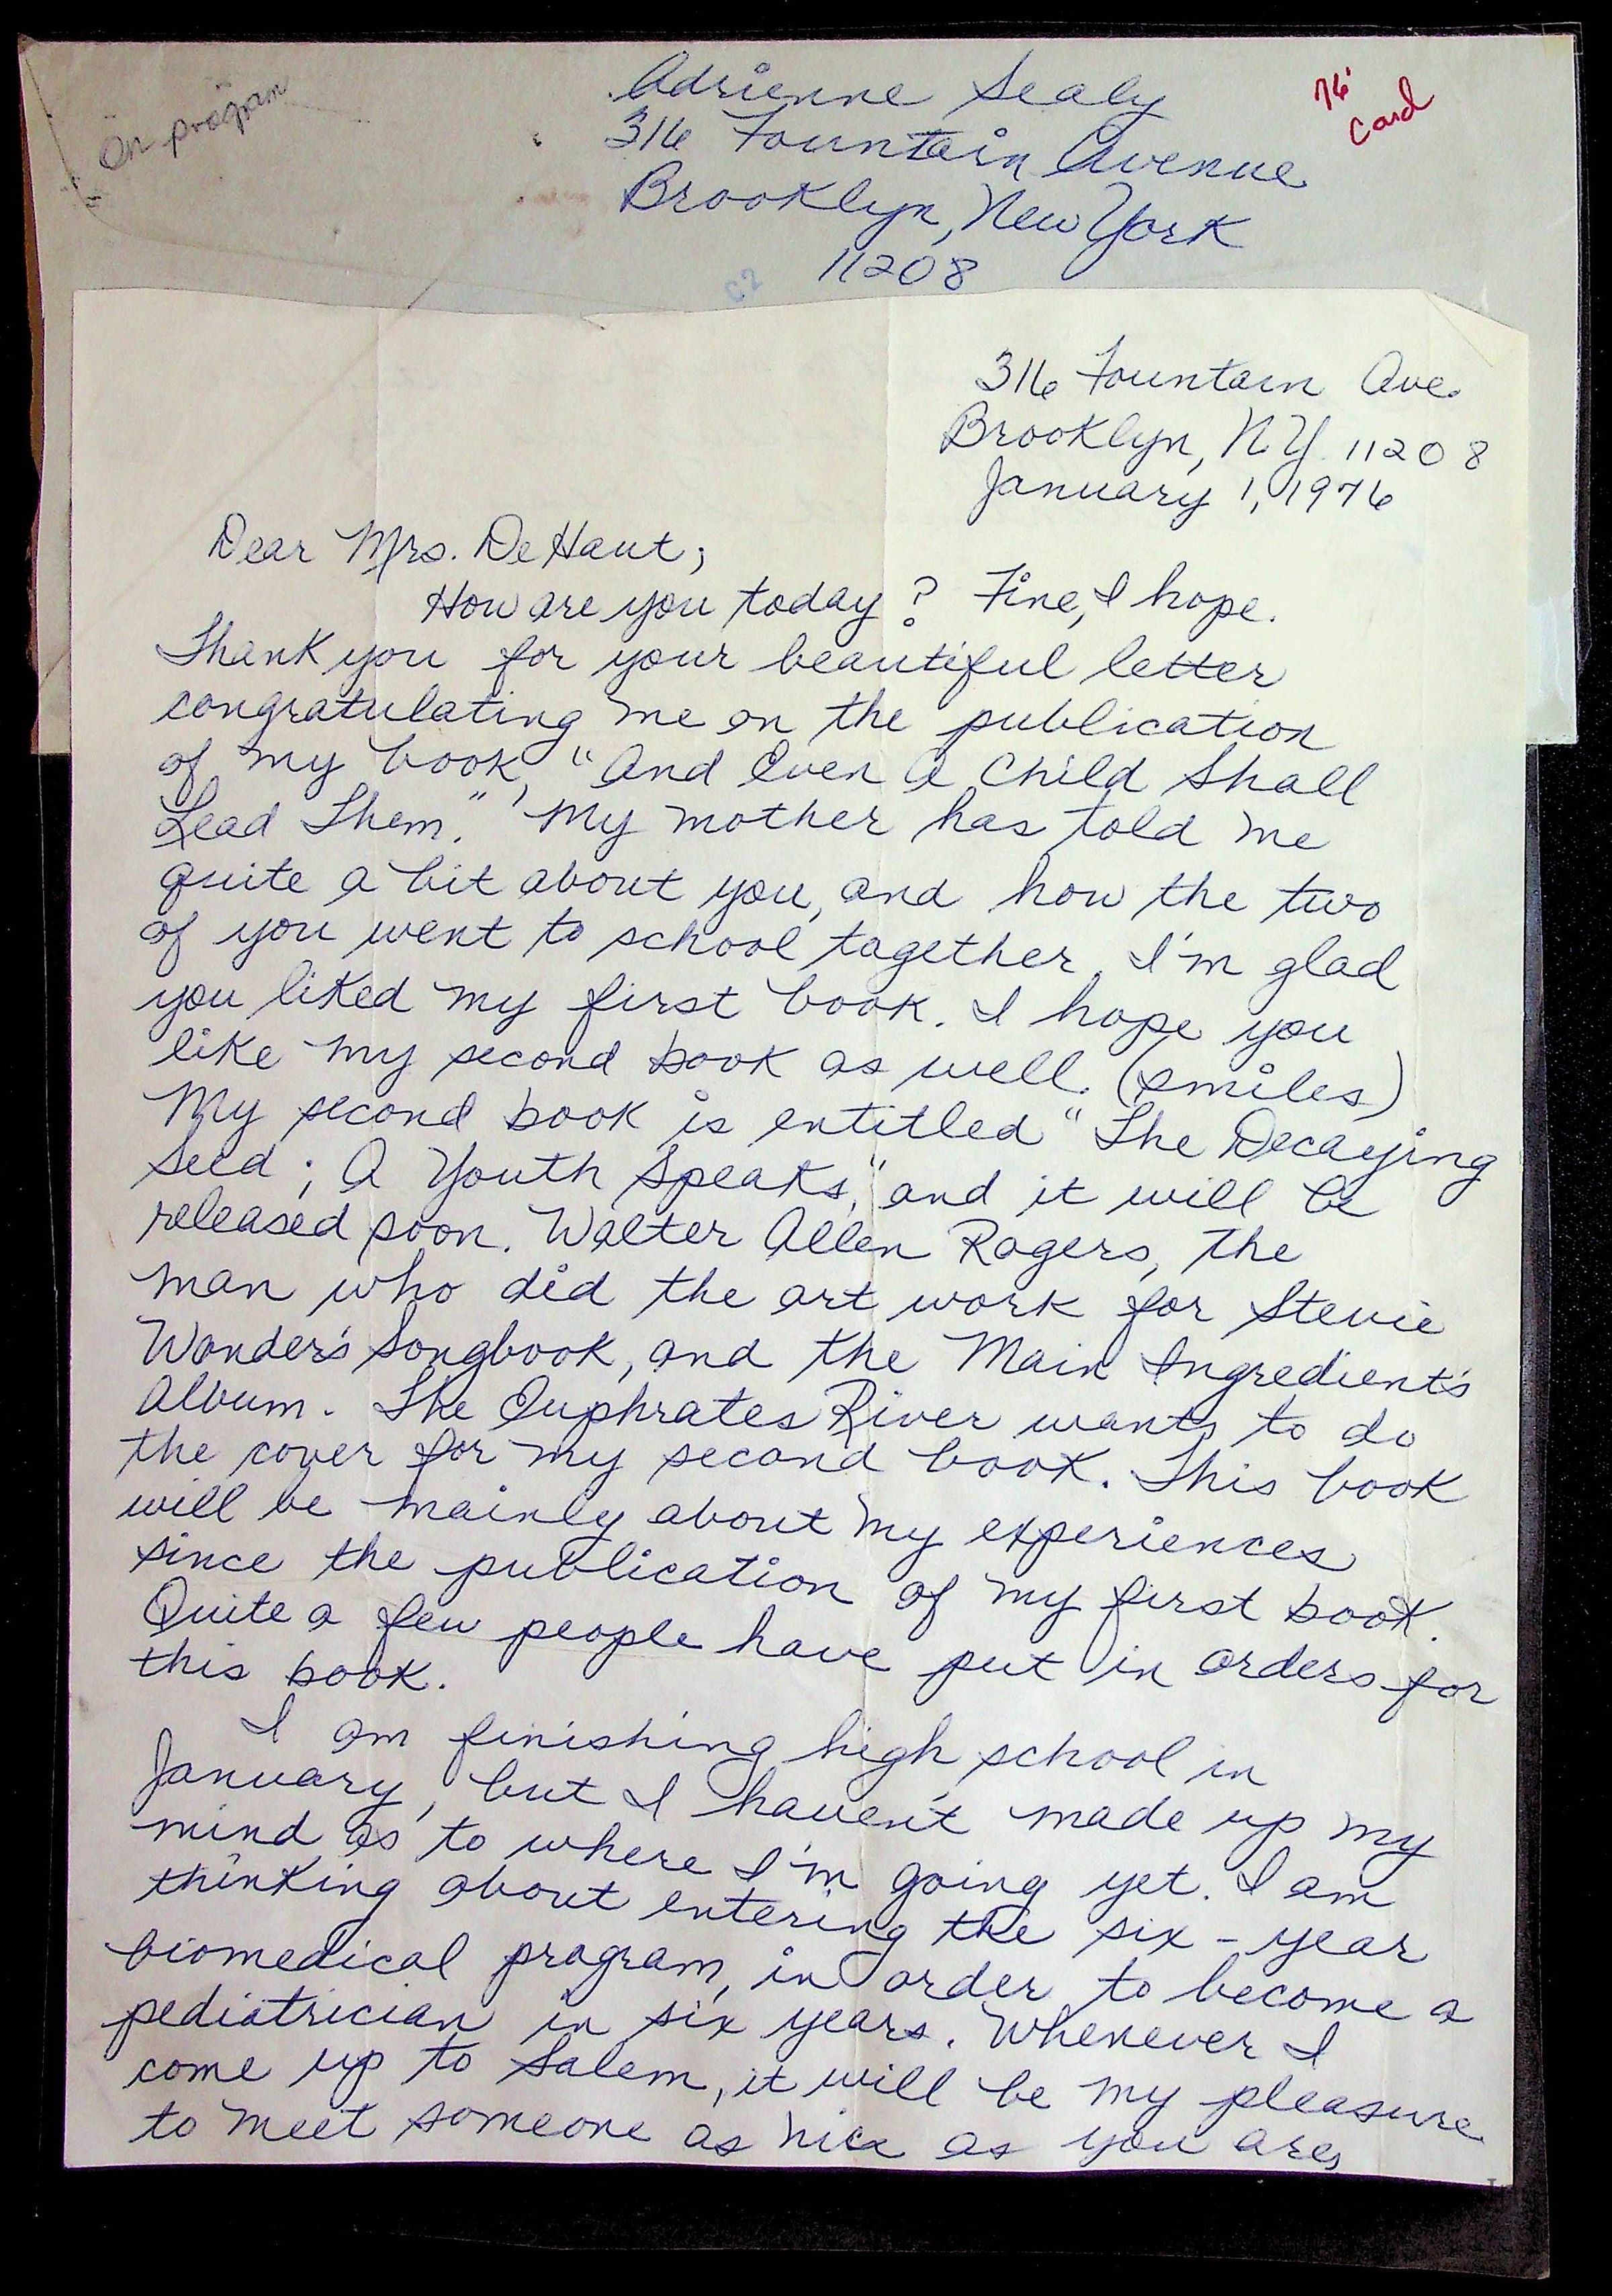 On program
Adrienne Sealy
316 Fountain Avenue
Brooklyn, New York
11208
76'
Card
C2
316 Fountain Ave.
Brooklyn, N.Y. 11208
January 1, 1976
Dear Mrs. DeHaut;
How are you today? Fine, I hope.
Thank you for your beautiful letter
congratulating me on the publication
of my book, "And Even A Child Shall
Lead Them." My mother has told me
quite a bit about you, and how the two
of you went to school together. I'm glad
you liked my first book. I hope you
like my second book as well. (smiles)
My second book is entitled "The Decaying
Seed; A Youth Speaks," and it will be
released soon. Walter Allen Rogers, the
man who did the art work for Stevie
Wonder's Songbook, and the Main Ingredient's
Album. The Euphrates River wants to do
the cover for my second book. This book
will be mainly about my experiences
since the publication of my first book.
Quite a few people have put in orders for
this book.
I am finishing high school in
January, but I haven't made up my
mind as to where I'm going yet. I am
thinking about entering the six-year
biomedical program, in order to become a
pediatrician in six years. Whenever I
come up to Salem, it will be my pleasure
to meet someone as nice as you are,